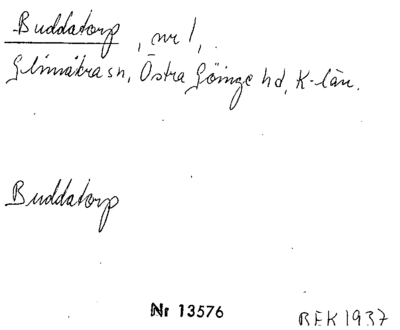 Buddatorp, nr 1,
Glimåkra sn, Östra Göinge hd, K-län.
Buddatorp
Nr 13576
BEK 1937